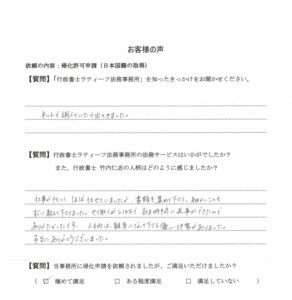 お客様の声
依頼の内容：帰化許可申請（日本国籍の取得）
【質問】「行政書士ラティーフ法務事務所」を知ったきっかけをお聞かせください。
ネットで調べていたら出てきました。
【質問】行政書士ラティーフ法務事務所の法務サービスはいかがでしたか？
また、行政書士 竹内仁志の人柄はどのように感じましたか？
仕事が忙しく ほぼ任せていましたが、書類を集めて下さり、細かいことも
教えて下さりました。やり取りがLINEで
ありがたかったです。
本当にありがとうございました。
【質問】当事務所に帰化申請を依頼されましたが、ご満足いただけましたか？
（ ☑ 極めて満足 □ ある程度満足 □ 満足していない ）